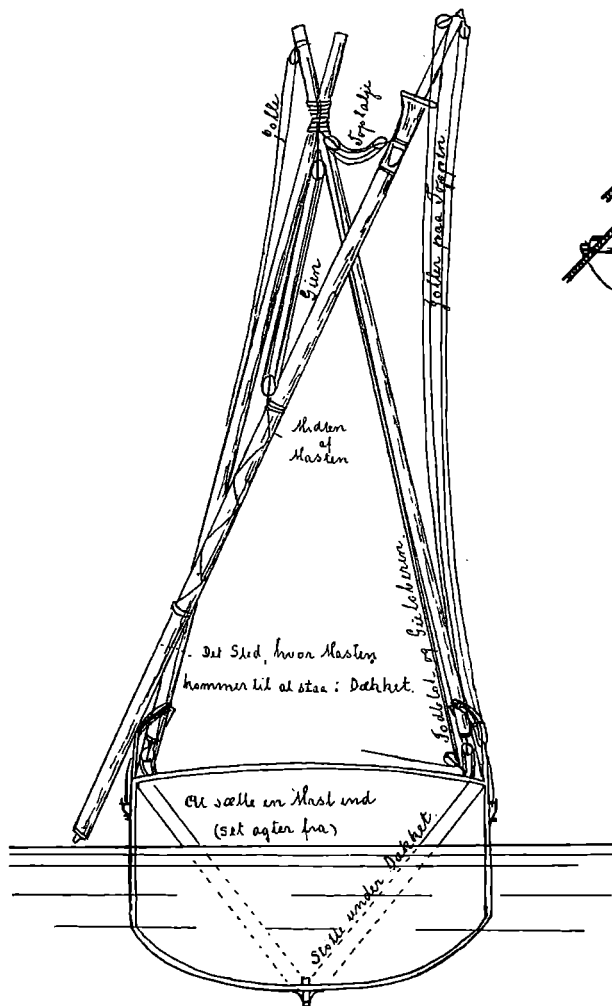 Jolle
Toptalje
Gien
Joller paa Toppen
Midten
af
Masten
Det Sted, hvor Masten
kommer til at staa i Dækket.
Fodblok og Gieløberen.
At sætte en Mast ind
(set agter fra)
Støtte under Dækket.